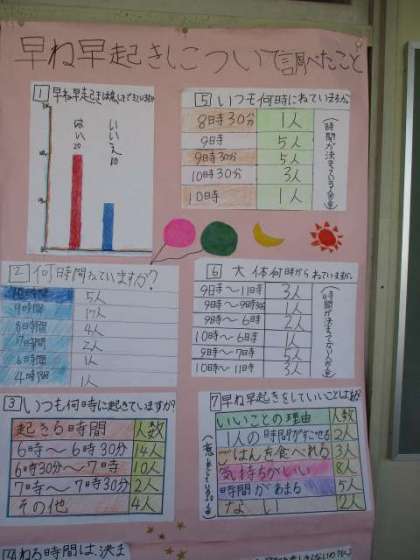 早ね早起きについて調べたこと
1 早ね早起きは
はい 20
いいえ 10
2 何時間ねていますか?
10時間 5人
9時間 17人
8時間 4人
7時間 2人
6時間 1人
4時間 1人
3 いつも何時に起きていますか?
起きる時間 人数
6時〜6時30分 14人
6時30分〜7時 10人
7時〜7時30分 2人
その他 4人
4 ねる時間は、決ま
5 いつも何時にねていますか。
(時間が決まっている人発達)
8時30分 1人
9時 5人
9時30分 5人
10時30分 3人
10時 1人
6 大体何時からねていますか。
9時〜11時 3人
9時〜9時30分 1人
9時〜6時 2人
10時〜11時 3人
10時〜6時 1人
9時〜7時 5人
10時〜7時 2人
7 早ね早起きをしていいことは
いいことの理由 人数
1人の時間がすごせる 2人
ごはんを食べれる 3人
気持ちがいい 8人
時間があまる 5人
ない 2人